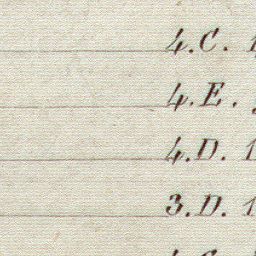 4.C.
4.E.
4.D. 1
3.D. 1